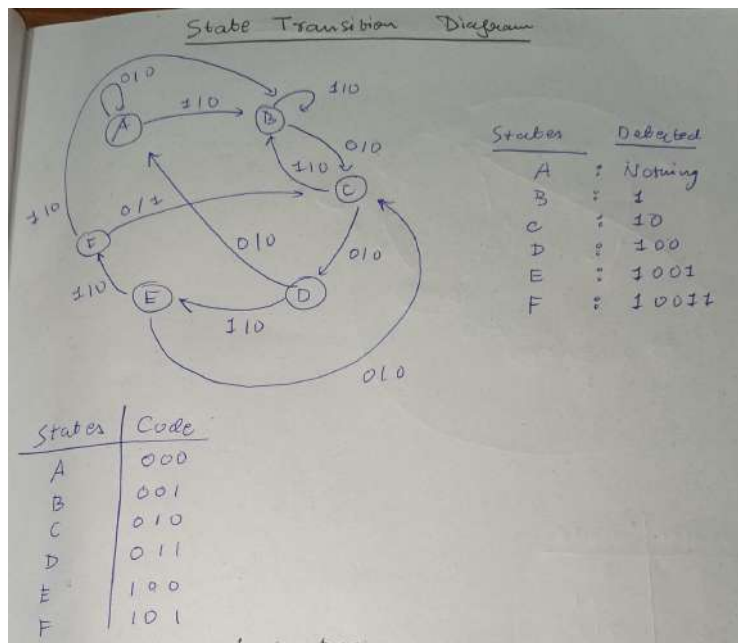 State Transition Diagram
0/0
1/0
A
B
1/0
0/0
1/0
C
1/0
0/1
F
0/0
0/0
1/0
E
D
1/0
0/0
States Detected
A : Nothing
B : 1
C : 10
D : 100
E : 1001
F : 10011
States Code
A 000
B 001
C 010
D 011
E 100
F 101